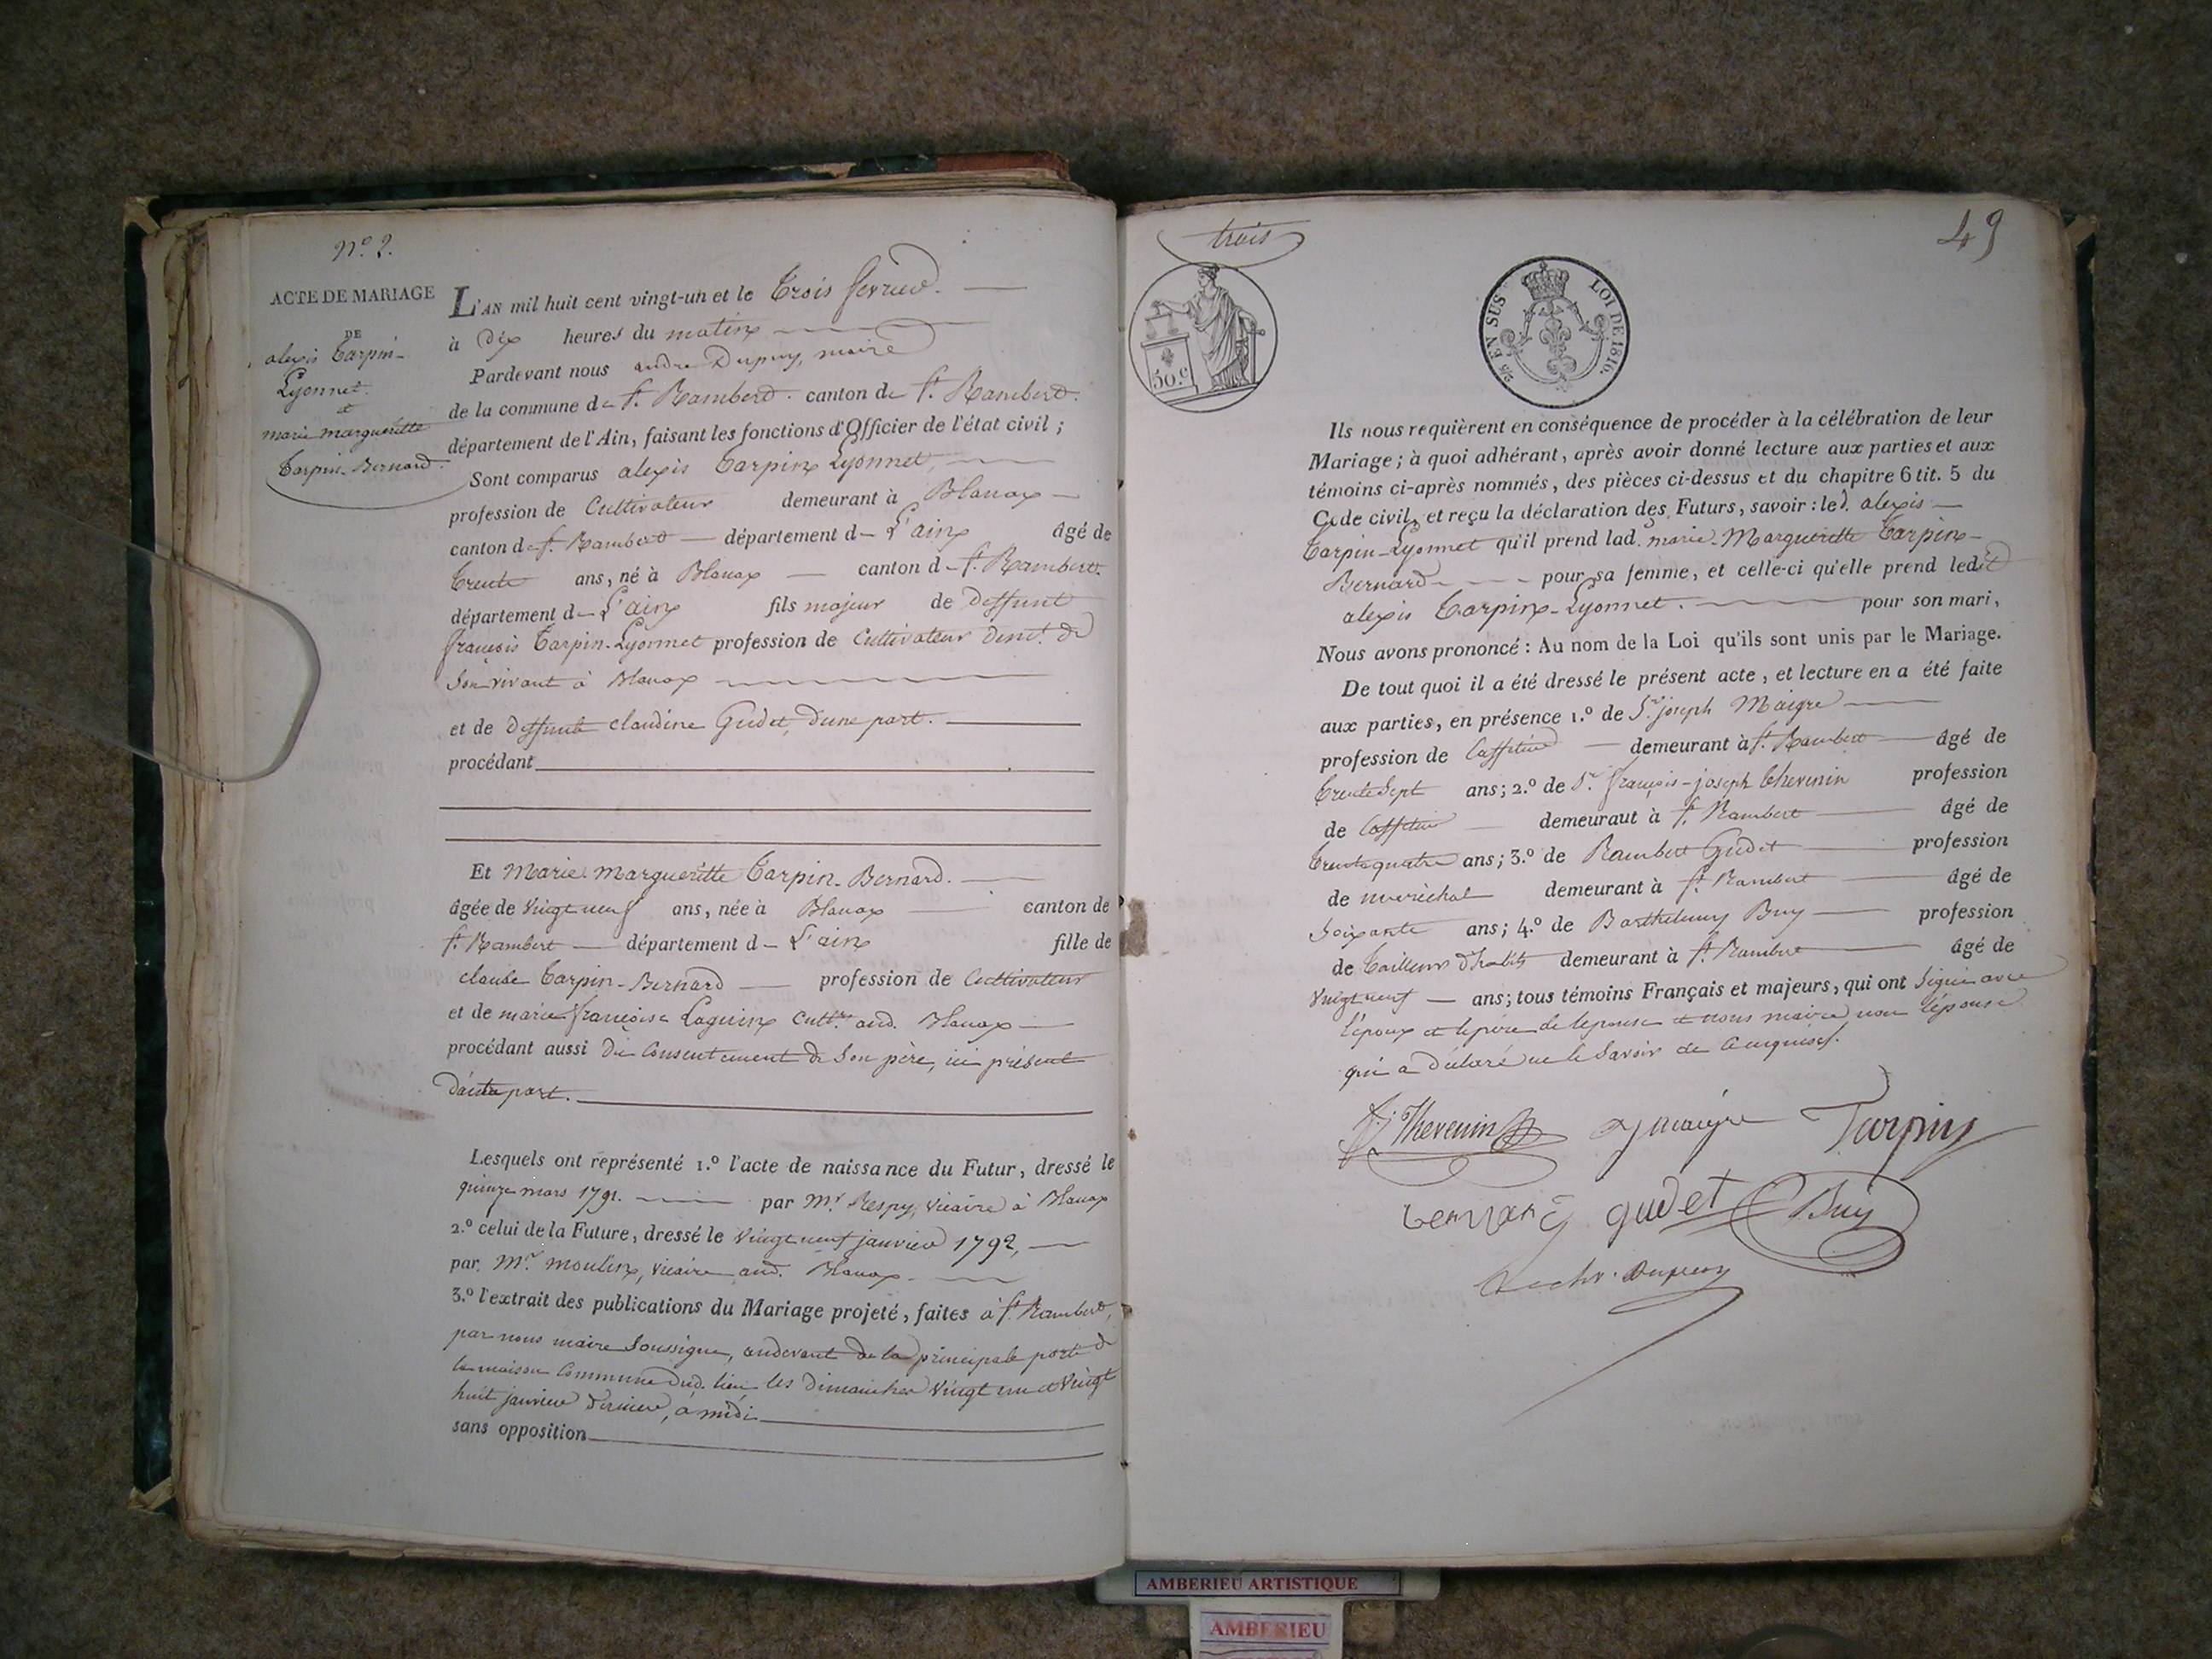 N.o 2.
ACTE DE MARIAGE
DE
alexis Tarpin-
Lyonnet.
et
marie margueritte
Tarpin-Bernard.
L'AN mil huit cent vingt-un et le Trois fevrier.
à dix heures du matin
Pardevant nous andré Dupuy, maire
de la commune de St. Rambert. canton de St. Rambert.
département de l'Ain, faisant les fonctions d'Officier de l'état civil ;
Sont comparus alexis Tarpin Lyonnet,
profession de Cultivateur demeurant à Blanax
canton de St. Rambert département d L'ain âgé de
trente ans, né à Blanax canton d St. Rambert.
département d L'ain fils majeur de deffunt
françois Tarpin-Lyonnet profession de Cultivateur demt. de
Son vivant à Blanax
et de deffunte claudine Gudet, d'une part.
procédant
Et Marie Margueritte Tarpin-Bernard.
âgée de vingt neuf ans, née à Blanax canton de
St. Rambert département d L'ain fille de
claude Tarpin-Bernard profession de Cultivateur
et de marie françoise Laguin cultr. aud. Blanax
procédant aussi du Consentement de Son père, ici présent
d'autre part.
Lesquels ont représenté 1.o l'acte de naissance du Futur, dressé le
quinze mars 1791. par Mr. Respy, vicaire à Blanax
2.o celui de la Future, dressé le vingt neuf janvier 1792,
par Mr. moulin, vicaire aud. Blanax
3.o l'extrait des publications du Mariage projeté, faites à St. Rambert,
par nous maire Soussigné, audevant de la principale porte de
la maison Commune dud. lieu les dimanches vingt un et vingt
huit janvier dernier, à midi
sans opposition
trois
49
50.c
EN SUS
LOI DE 1816.
Ils nous requièrent en conséquence de procéder à la célébration de leur
Mariage ; à quoi adhérant, après avoir donné lecture aux parties et aux
témoins ci-après nommés, des pièces ci-dessus et du chapitre 6 tit. 5 du
Code civil, et reçu la déclaration des Futurs, savoir : led. alexis
Tarpin-Lyonnet qu'il prend lad. marie-Margueritte Tarpin-
Bernard pour sa femme, et celle-ci qu'elle prend ledit
alexis Tarpin-Lyonnet. pour son mari,
Nous avons prononcé : Au nom de la Loi qu'ils sont unis par le Mariage.
De tout quoi il a été dressé le présent acte, et lecture en a été faite
aux parties, en présence 1.o de Sr. joseph Maigre
profession de Caffetier demeurant à St. Rambert âgé de
trente Sept ans ; 2.o de Sr. françois-joseph thevenin profession
de Caffetier demeuraut à St. Rambert âgé de
trente quatre ans ; 3.o de Rambert Gudet profession
de maréchal demeurant à St. Rambert âgé de
Soixante ans ; 4.o de Barthelemy Buy profession
de Tailleur d'habits demeurant à St. Rambert âgé de
vingt neuf ans ; tous témoins Français et majeurs, qui ont Signé avec
l'époux et le père de l'epouse et nous maire non l'épouse
qui a déclaré ne le Savoir de ce enquise.
Thevenin J maigre Tarpin
bernard gudet Buy
Dupuy
AMBERIEU ARTISTIQUE
AMBERIEU